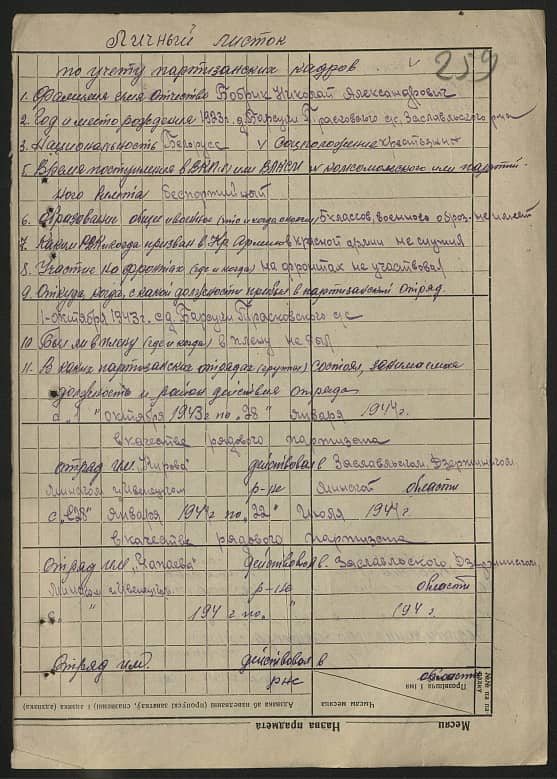 Личный листок
по учету партизанских кадров. 259
1. Фамилия имя отчество Бобрик Николай Александрович
2. Год и место рождения 1923г. д. Барсуки с/с, Заславльского р-на
3. Национальность Белорусс
5. Время поступления в ВКП(б) или ВЛКСМ
билета беспортийный
6. Образование общее и военное (что и когда окончил) 5 классов, военного образ. не имеет
7. Каким РВК и когда призван в Кр. Армию в красной армии не служил
8. Участие на фронтах (где и когда) на фронтах не участвовал
9. Откуда, когда, с какой должности прибыл в партизанский отряд
1-октября 1943г. с д. Барсуки с/с
10. Был ли в плену (где и когда) в плену не был
11. В каких партизанских отрядах (группах) состоял,
должность и район действия отряда
с "1" октября 1943г по "28" января 1944г.
в качестве рядового партизана
отряд им. Кирова действовал в Заславльском, Дзержинском
Минском и Ивенецком р-не Минской области
с "28" января 1944г по "22" июля 1944г.
в качестве рядового партизана
отряд им. "Чапаева" действовал в. Заславльского, Дзержинском,
Минском и Ивенецком р-не области
с " " 194 г по " 194 г.
Отряд им. действовал в
р-не области
№№ па па-
радку
Прозвішча і імя
Чысла месяца
Адзнака аб наведванні (пропуск) заняткаў, спазненні і адзнака (адзнака)
Месяц
Назва прадмета